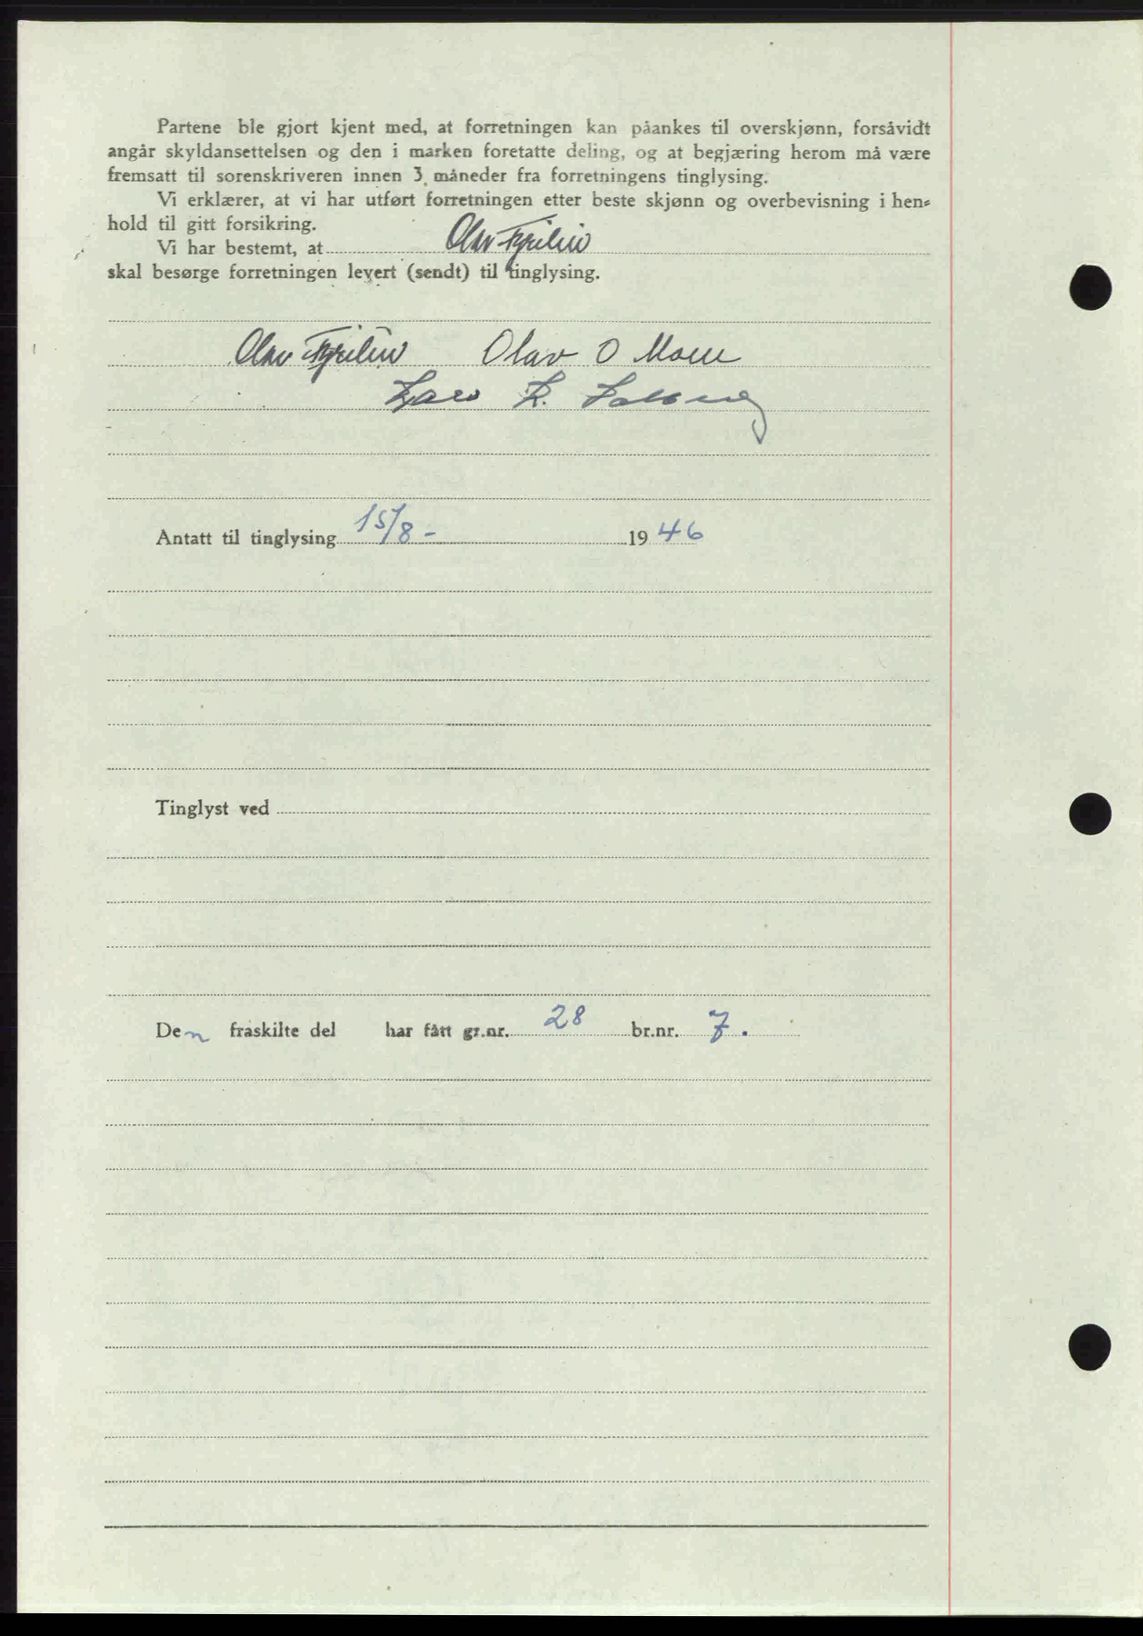 Partene ble gjort kjent med, at forretningen kan påankes til overskjønn, forsåvidt
angår skyldansettelsen og den i marken foretatte deling, og at begjæring herom må være
fremsatt til sorenskriveren innen 3 måneder fra forretningens tinglysing.
Vi erklærer, at vi har utført forretningen etter beste skjønn og overbevisning i hen-
hold til gitt forsikring.
Vi har bestemt, at Olav
skal besørge forretningen levert (sendt) til tinglysing.
Olav Olav O Moen
Antatt til tinglysing 15/8- 1946
Tinglyst ved
Den fraskilte del har fått gr.nr. 28 br.nr. 7.